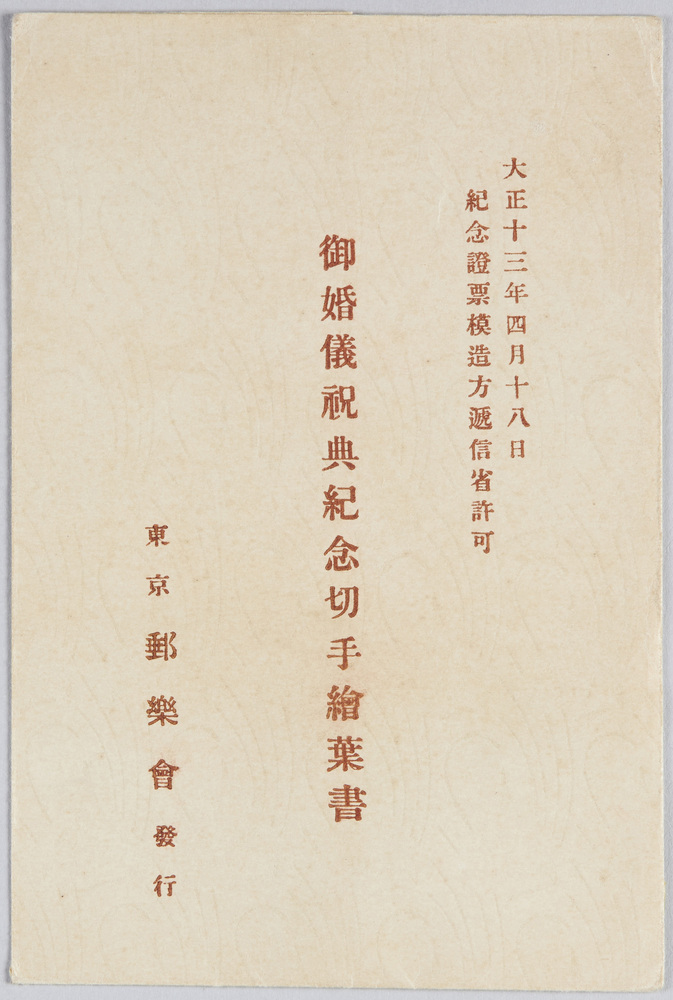 大正十三年四月十八日
紀念證票模造方遞信省許可
御婚儀祝典紀念切手繪葉書
東京郵樂會發行